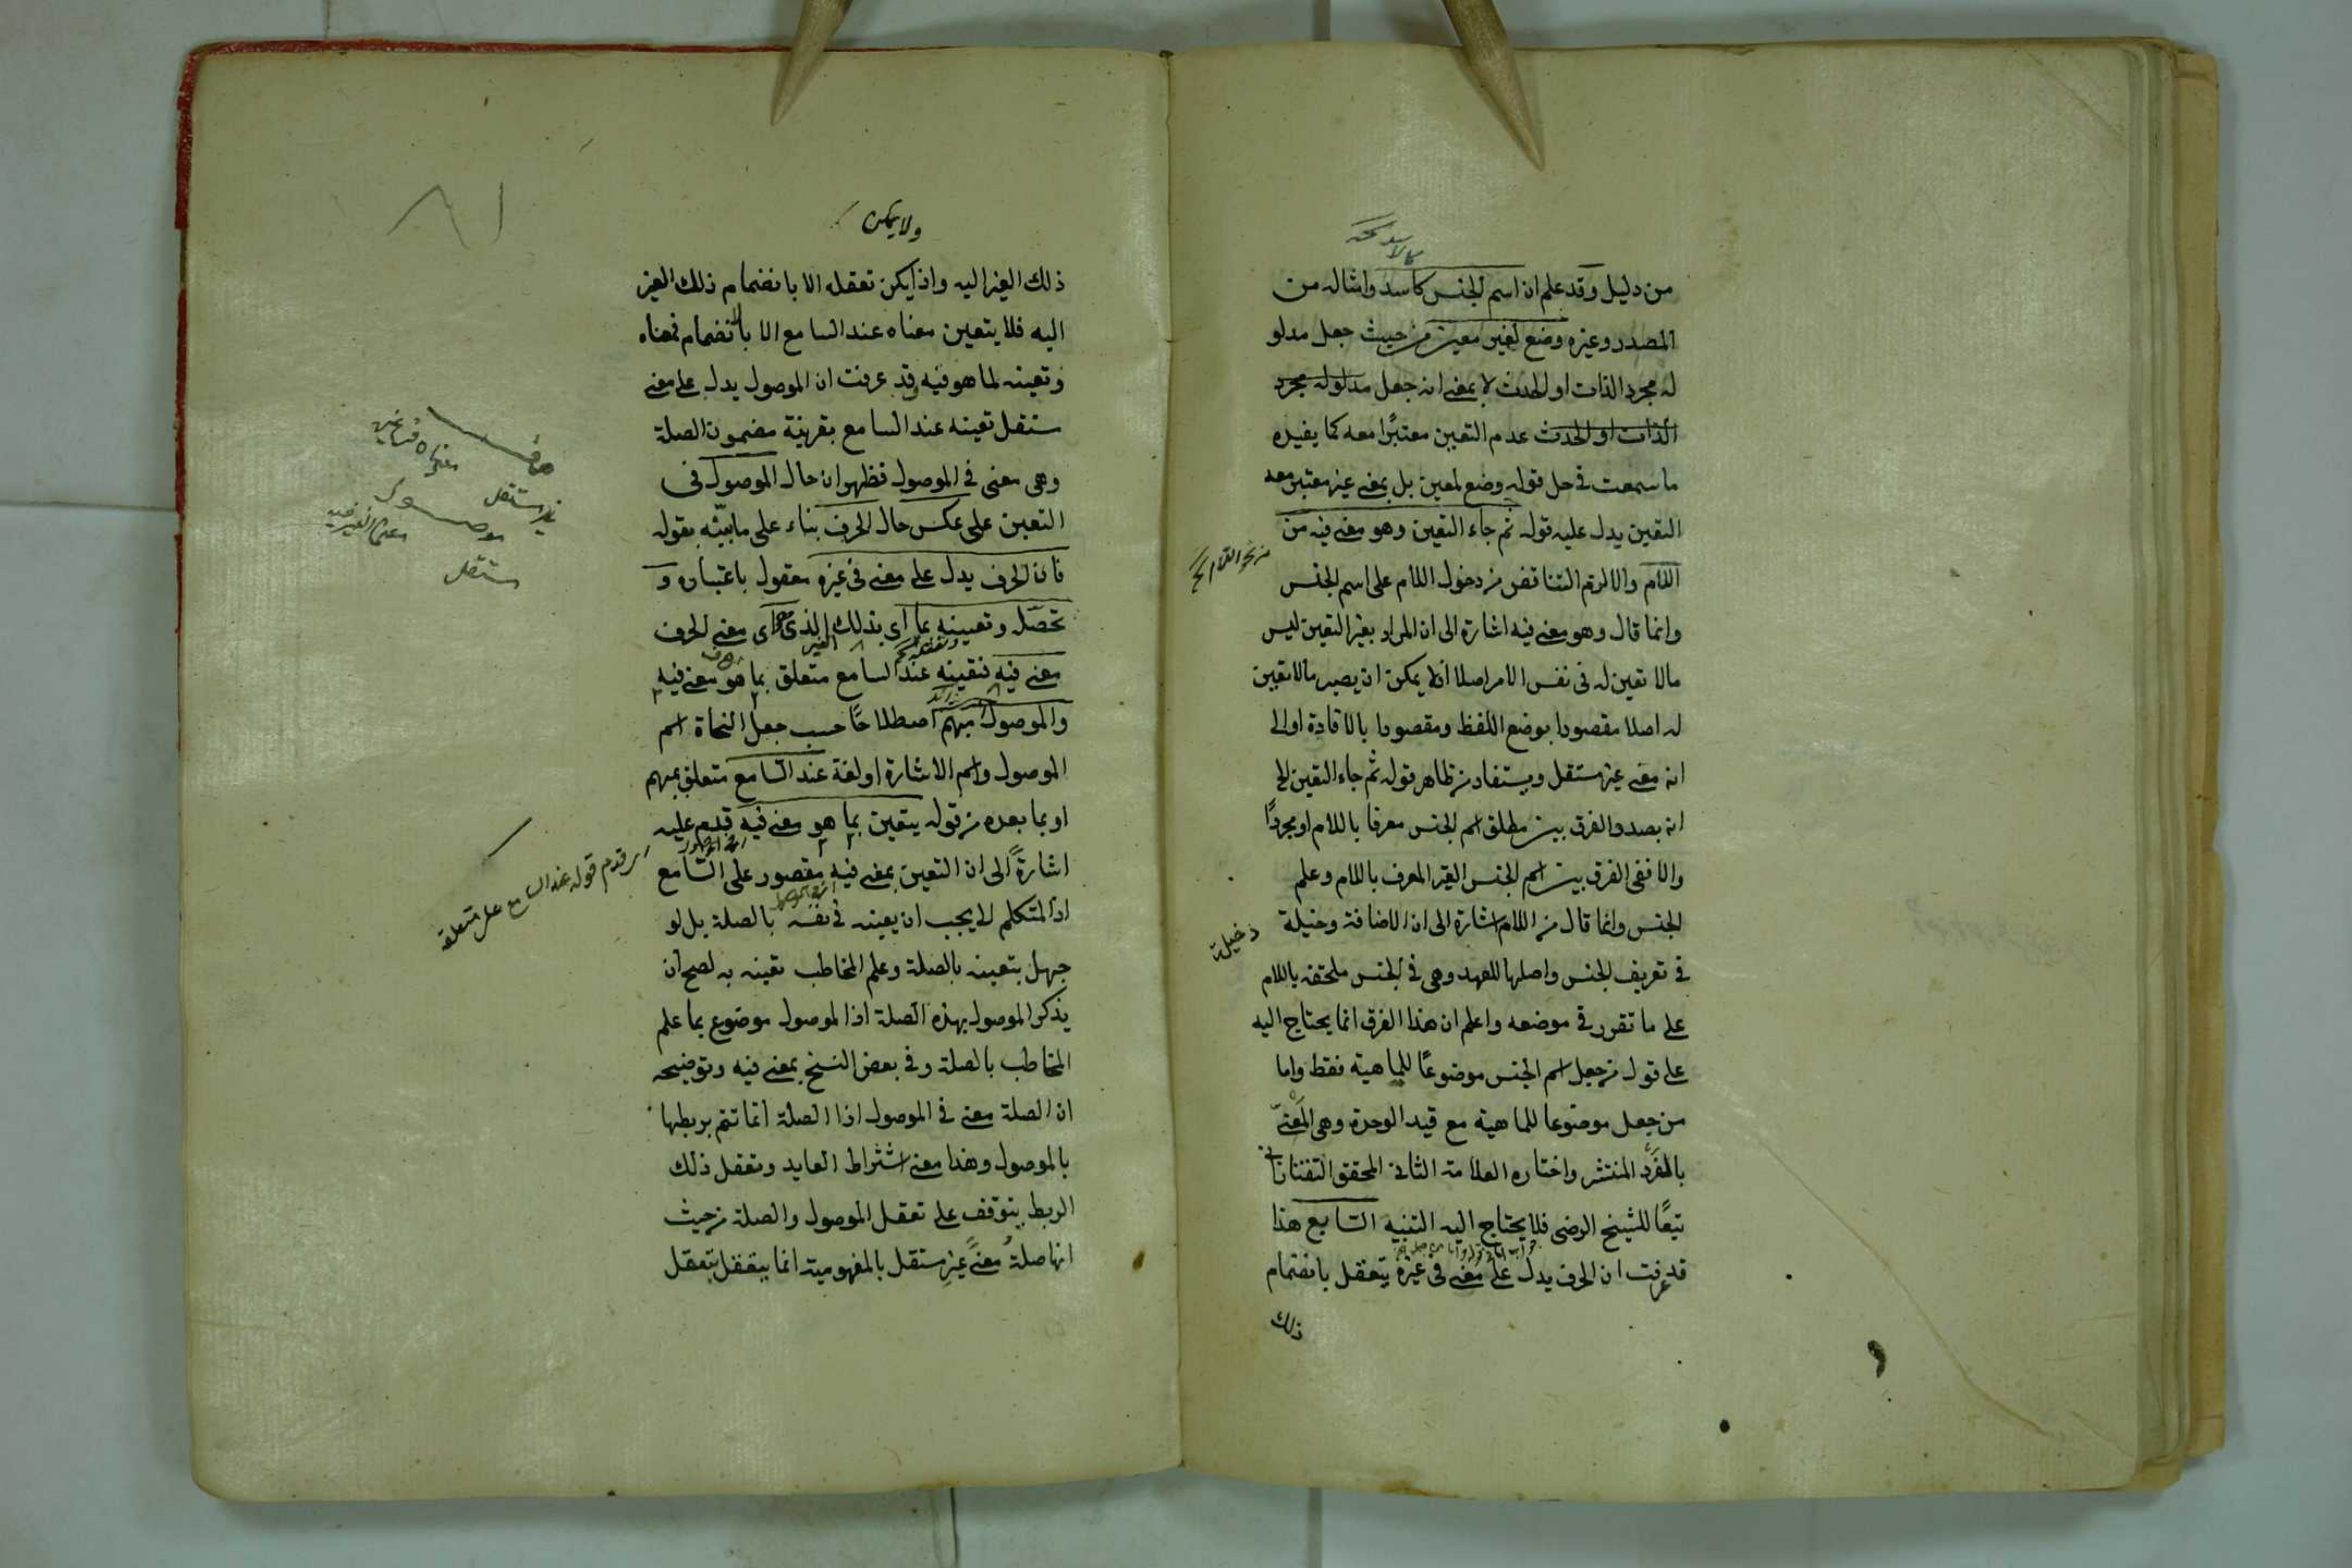 من دليل وقد علم ان اسم الجنس كأسد وامثاله من
المصدر وغيره وضع لغير معين من حيث جعل مدلو
له مجرد الذات او الحدث لا بمعنى انه جعل مدلوله مجرد
الذات او الحدث عدم التعين معتبرًا معه كما يفيده
ما سمعت في حل قوله وضع لمعين بل بمعنى غير معتبر معه
التعين يدل عليه قوله ثم جاء التعين وهو معنى فيه من
اللام والا لزم التناقض من دخول اللام على اسم الجنس
وانما قال وهو معنى فيه اشارة الى ان المراد بغير التعين ليس
مالا تعين له في نفس الامر اصلا اذ لا يمكن ان يصير مالا تعين
له اصلا مقصودا بوضع اللفظ ومقصودا بالافادة او الى
انه معنى غير مستقل ويستفاد من ظاهر قوله ثم جاء التعين الخ
انه بصدد الفرق بين مطلق اسم الجنس معرفا باللام او مجردًا
والا ففى الفرق بين اسم الجنس الغير المعرف باللام وعلم
الجنس وانما قال من اللام اشارة الى ان الاضافة وخيلة
دخيلة
في تعريف الجنس واصلها للعهد وهي في الجنس ملحقة باللام
على ما تقرر في موضعه واعلم ان هذا الفرق انما يحتاج اليه
على قول من جعل اسم الجنس موضوعًا للماهية فقط واما
من جعل موضوعا للماهية مع قيد الوحدة وهي المعنىّ
بالفرد المنتشر واختاره العلامة الثاني المحقق التفتازاني
تبعًا للشيخ الرضي فلا يحتاج اليه التنبيه السابع هذا
قد عرفت ان الحرف يدل على معنى في غيره يتعقل بانضمام
ذلك
ولا يمكن
ذلك الغير اليه واذ لم يكن تعقله الا بانضمام ذلك الغير
اليه فلا يتعين معناه عند السامع الا بالانضمام فمعناه
وتعينه لما هو فيه وقد عرفت ان الموصول يدل على معنى
مستقل تعينه عند السامع بقرينة مضمون الصلة
وهي معنى في الموصول فظهر ان حال الموصول في
التعين على عكس حال الحرف بناء على ما بيّنه بقوله
فان الحرف يدل على معنى في غيره معقول باعتباره و
تحصّله وتعيينه بما اى بذلك الذي هو اى معنى الحرف
معنى فيه فتعينه عند السامع متعلق بما هو معنى فيه
والموصول مبهم اصطلاحًا حسب جعل النحاة اسم
الموصول واسم الاشارة او لغة عند السامع متعلق بمبهم
او بما بعده من قوله يتعين بما هو معنى فيه قدم عليه
اشارةً الى ان التعين بمعنى فيه مقصور على السامع
اى قدم قوله عند السامع على متعلقه
اذ المتكلم لا يجب ان يعينه في نفسه بالصلة بل لو
جهل بتعينه بالصلة وعلم المخاطب تعينه به لصح ان
يذكر الموصول بهذه الصلة اذ الموصول موضوع بما علم
المخاطب بالصلة وفي بعض النسخ بمعنى فيه وتوضيحه
ان الصلة معنى في الموصول اذ الصلة انما تتم بربطها
بالموصول وهذا معنى اشتراط العايد وتعقل ذلك
الربط يتوقف على تعقل الموصول والصلة من حيث
انها صلة معنىً غير مستقل بالمفهومية انما يتعقل بتعقل